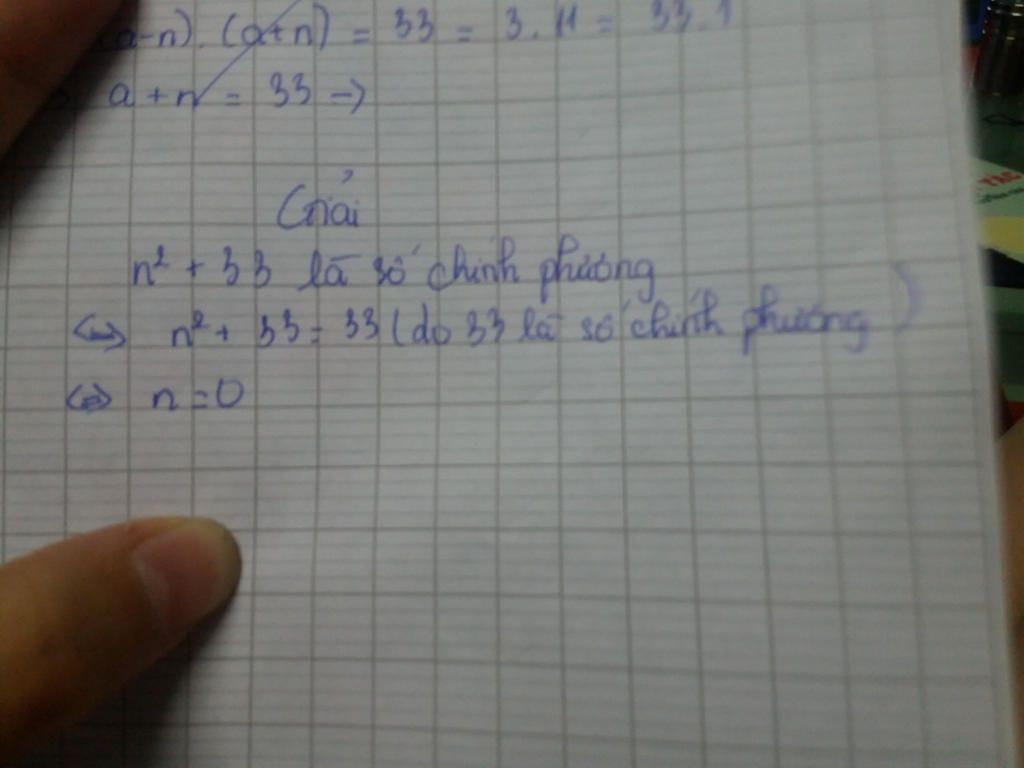 (a-n). (a+n) = 33 = 3. 11 = 33.1
a + n = 33 →
Giải
n² + 33 là số chính phương
<=> n² + 33 = 33 (do 33 là số chính phương)
<=> n = 0
TÁC